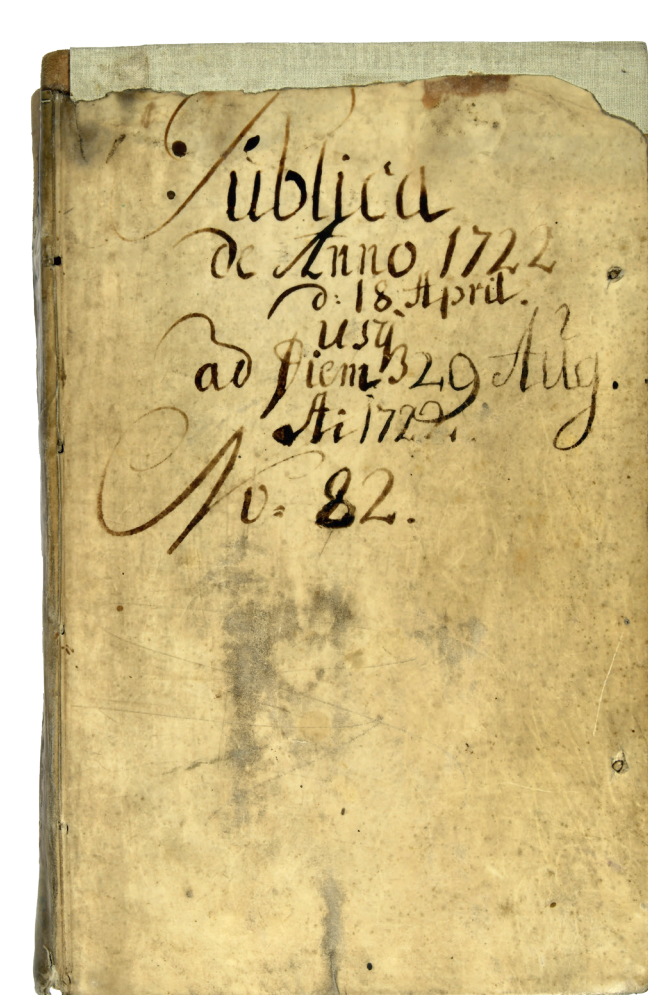 Publica
de Anno 1722
d: 18 April.
usq
ad Diem 29 Aug.
Ai 1722.
No: 82.